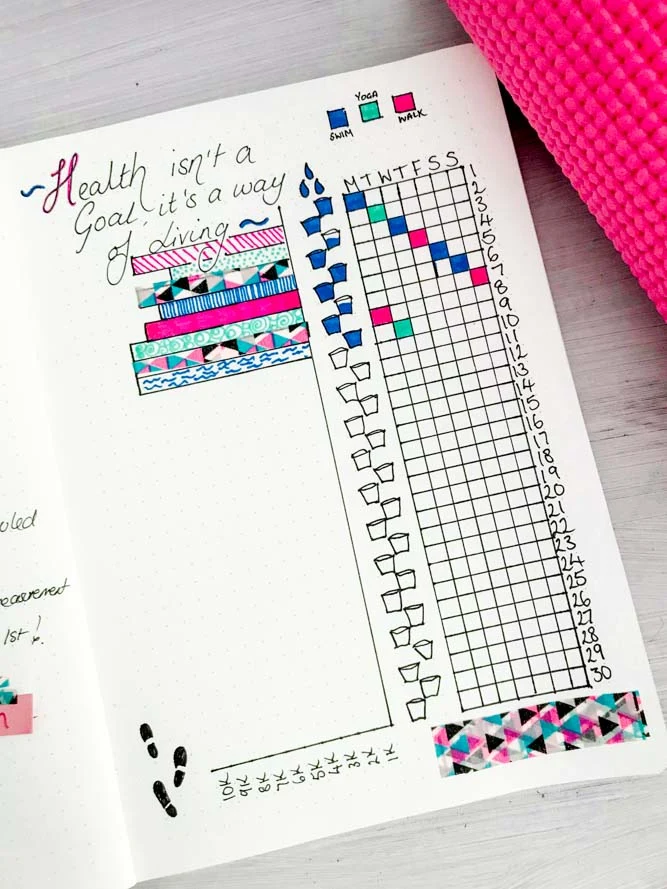 YOGA
SWIM
WALK
Health isn't a
Goal, it's a way
of living
M T W T F S S
1
2
3
4
5
6
7
8
9
10
11
12
13
14
15
16
17
18
19
20
21
22
23
24
25
26
27
28
29
30
1st!
10K 9K 8K 7K 6K 5K 4K 3K 2K 1K